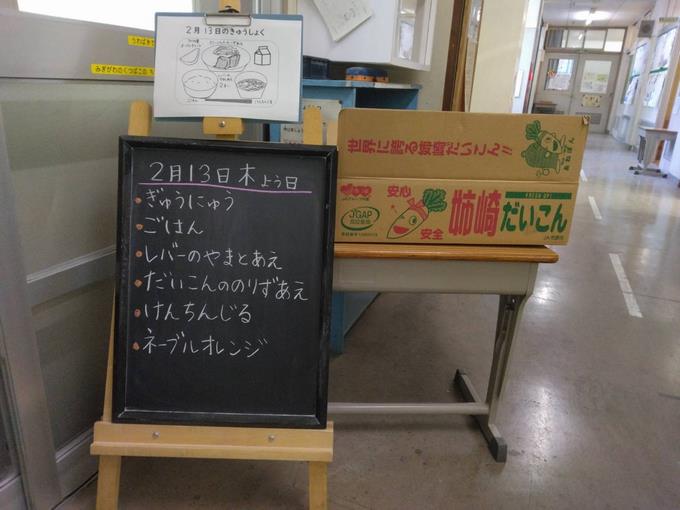 2月13日のきゅうしょく
2月13日 木よう日
ぎゅうにゅう
ごはん
レバーのやまとあえ
だいこんののりずあえ
けんちんじる
ネーブルオレンジ
世界に誇る姉崎だいこん!!
安心
安全
JGAP
姉崎だいこん
FRESH UP!
みぎがわのくつばこの